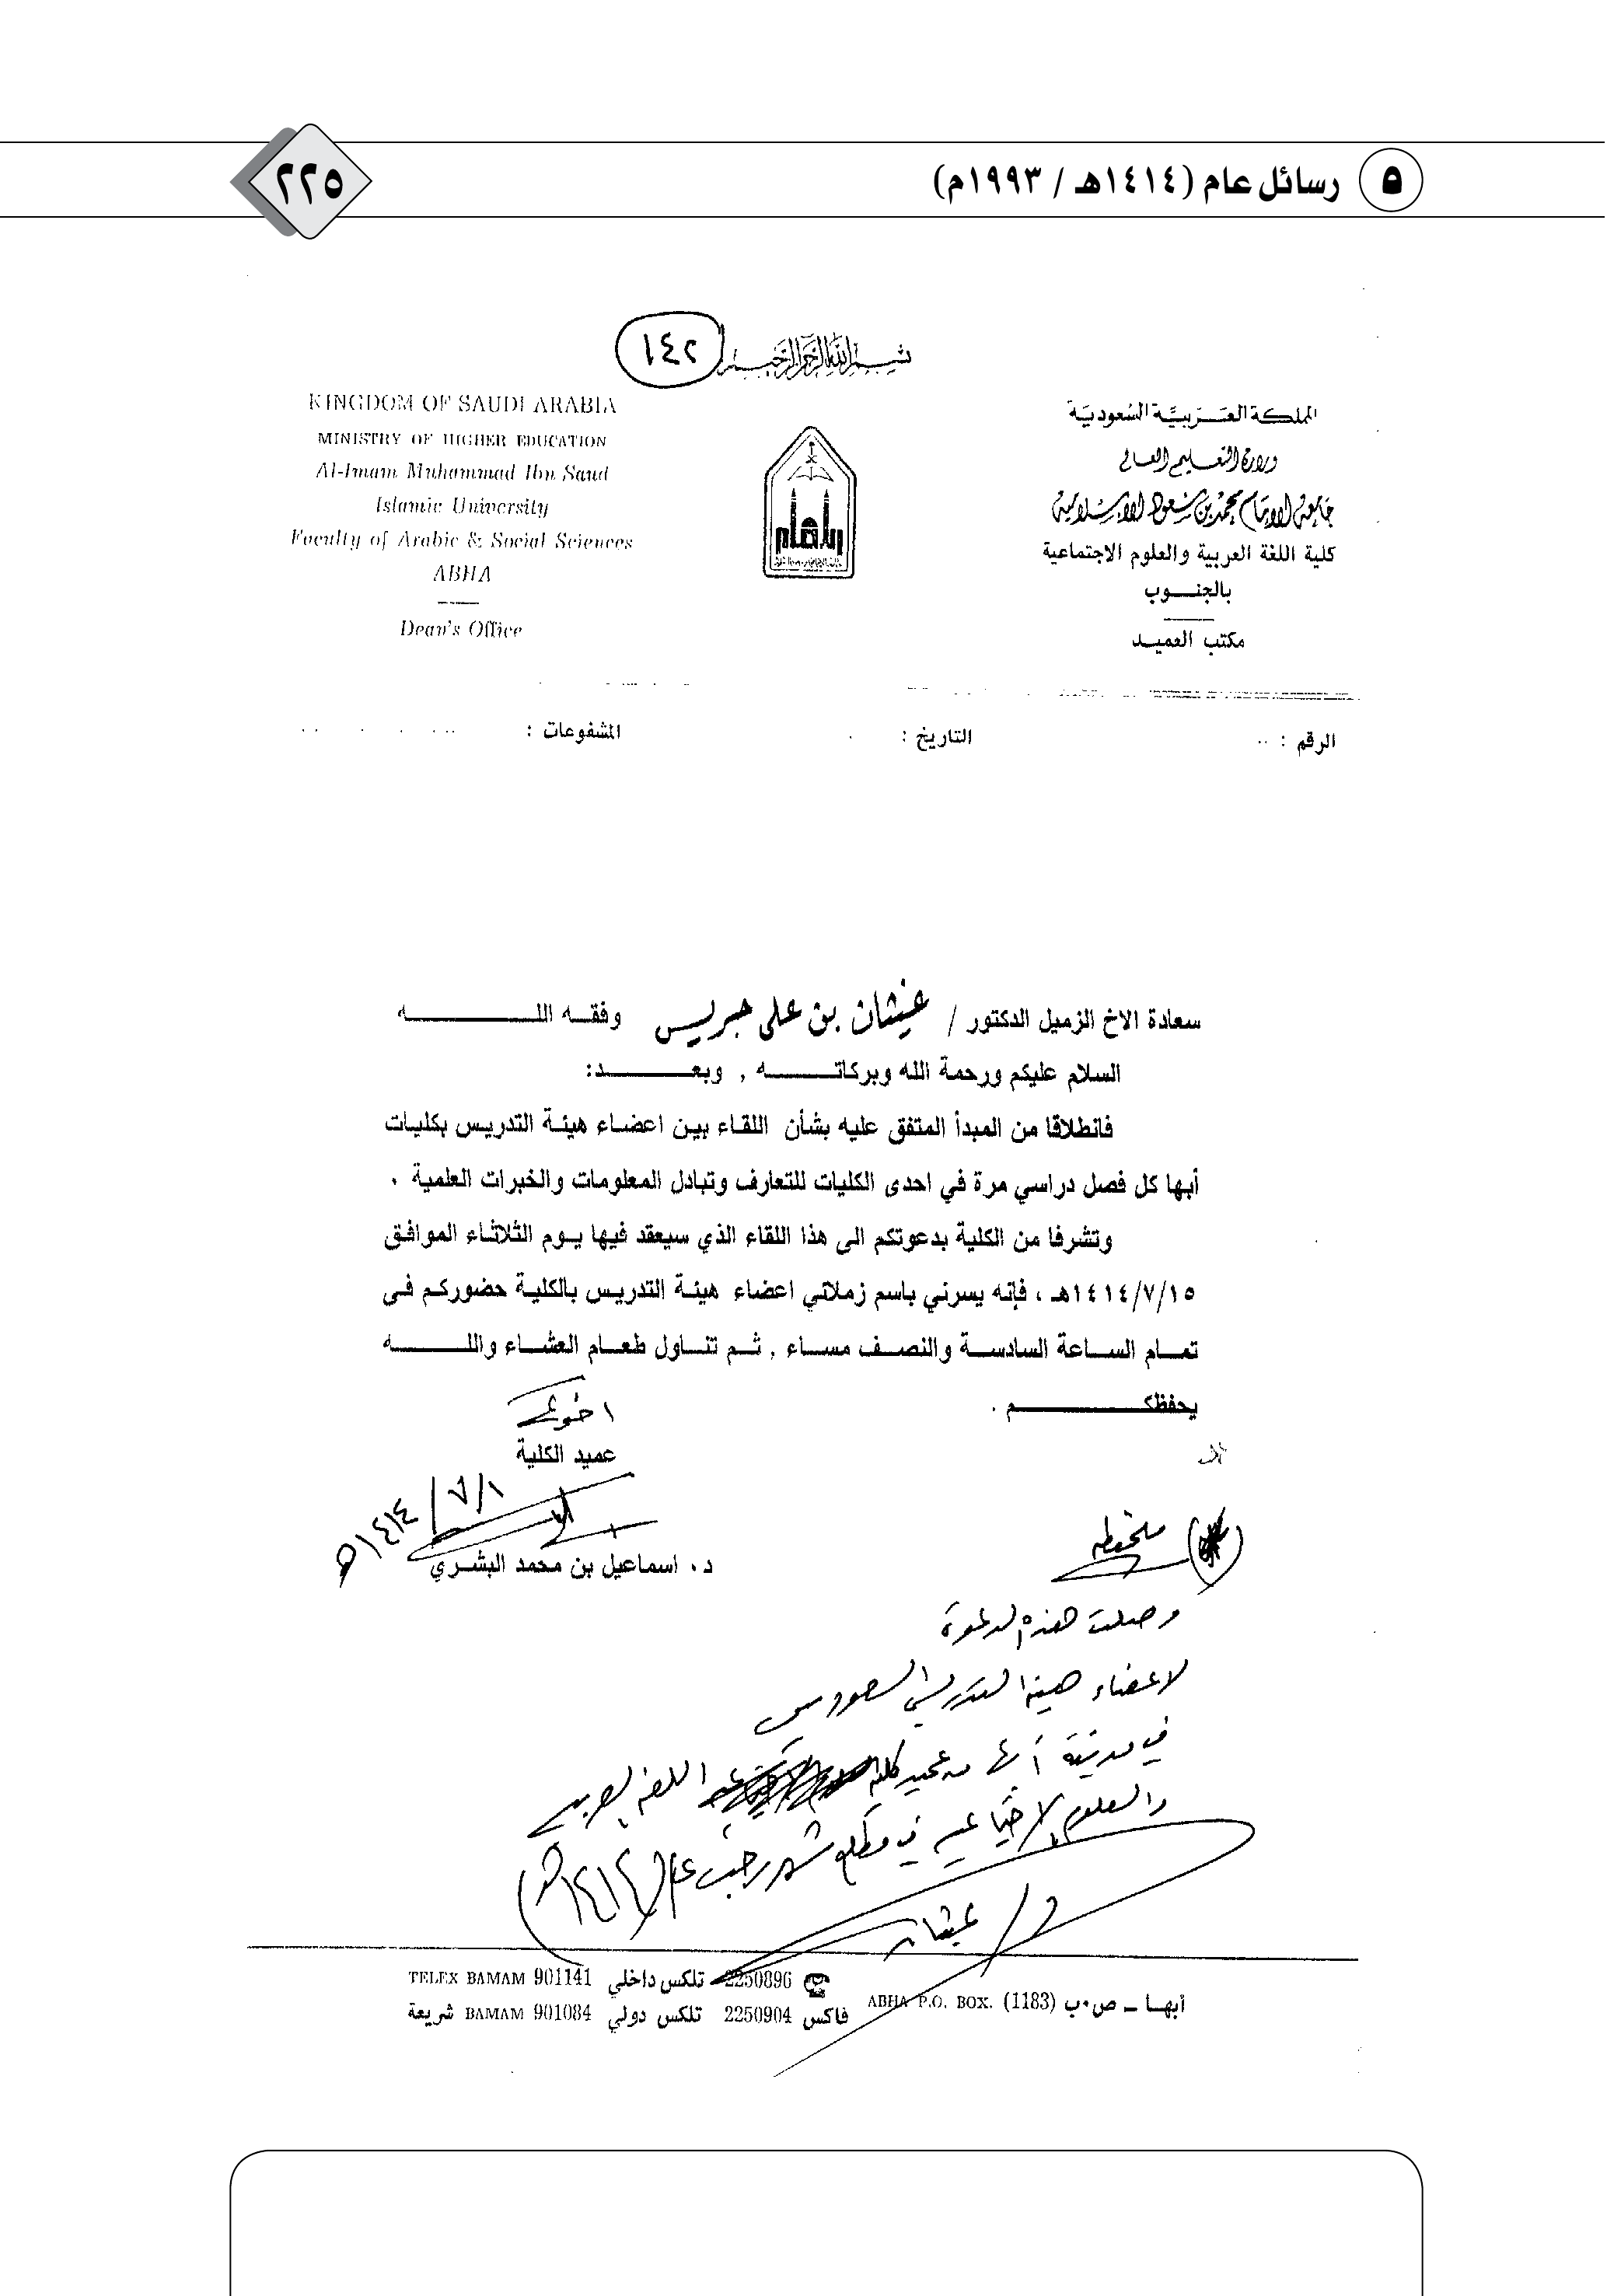 ٥ رسائل عام (١٤١٤هـ / ١٩٩٣م)
٢٢٥
١٤٢
بسم الله الرحمن الرحيم
المملكة العربية السعودية
وزارة التعليم العالي
جامعة الإمام محمد بن سعود الإسلامية
كلية اللغة العربية والعلوم الاجتماعية
بالجنوب
مكتب العميد
KINGDOM OF SAUDI ARABIA
MINISTRY OF HIGHER EDUCATION
Al-Imam Muhammad Ibn Saud
Islamic University
Faculty of Arabic & Social Sciences
ABHA
Dean's Office
الرقم : التاريخ : المشفوعات :
سعادة الاخ الزميل الدكتور / غيثان بن علي جريس وفقه الله
السلام عليكم ورحمة الله وبركاته , وبعد:
فانطلاقا من المبدأ المتفق عليه بشأن اللقاء بين اعضاء هيئة التدريس بكليات
أبها كل فصل دراسي مرة في احدى الكليات للتعارف وتبادل المعلومات والخبرات العلمية .
وتشرفا من الكلية بدعوتكم الى هذا اللقاء الذي سيعقد فيها يوم الثلاثاء الموافق
١٤١٤/٧/١٥هـ ، فإنه يسرني باسم زملائي اعضاء هيئة التدريس بالكلية حضوركم في
تمام الساعة السادسة والنصف مساء , ثم تناول طعام العشاء والله
يحفظكم .
اخوكم
عميد الكلية
١٤١٤/٧/١هـ
د. اسماعيل بن محمد البشري
ملحوظة
وصلت هذه الدعوة
لاعضاء هيئة التدريس السعوديين
في مدينة أبها من عميد كلية اللغة العربية
والعلوم الاجتماعية في مطلع شهر رجب عام (١٤١٤هـ)
د/ غيثان
أبها – ص.ب ABHA P.O. BOX. (1183)
2250896 تلكس داخلي TELEX BAMAM 901141
فاكس 2250904 تلكس دولي BAMAM 901084 شريعة